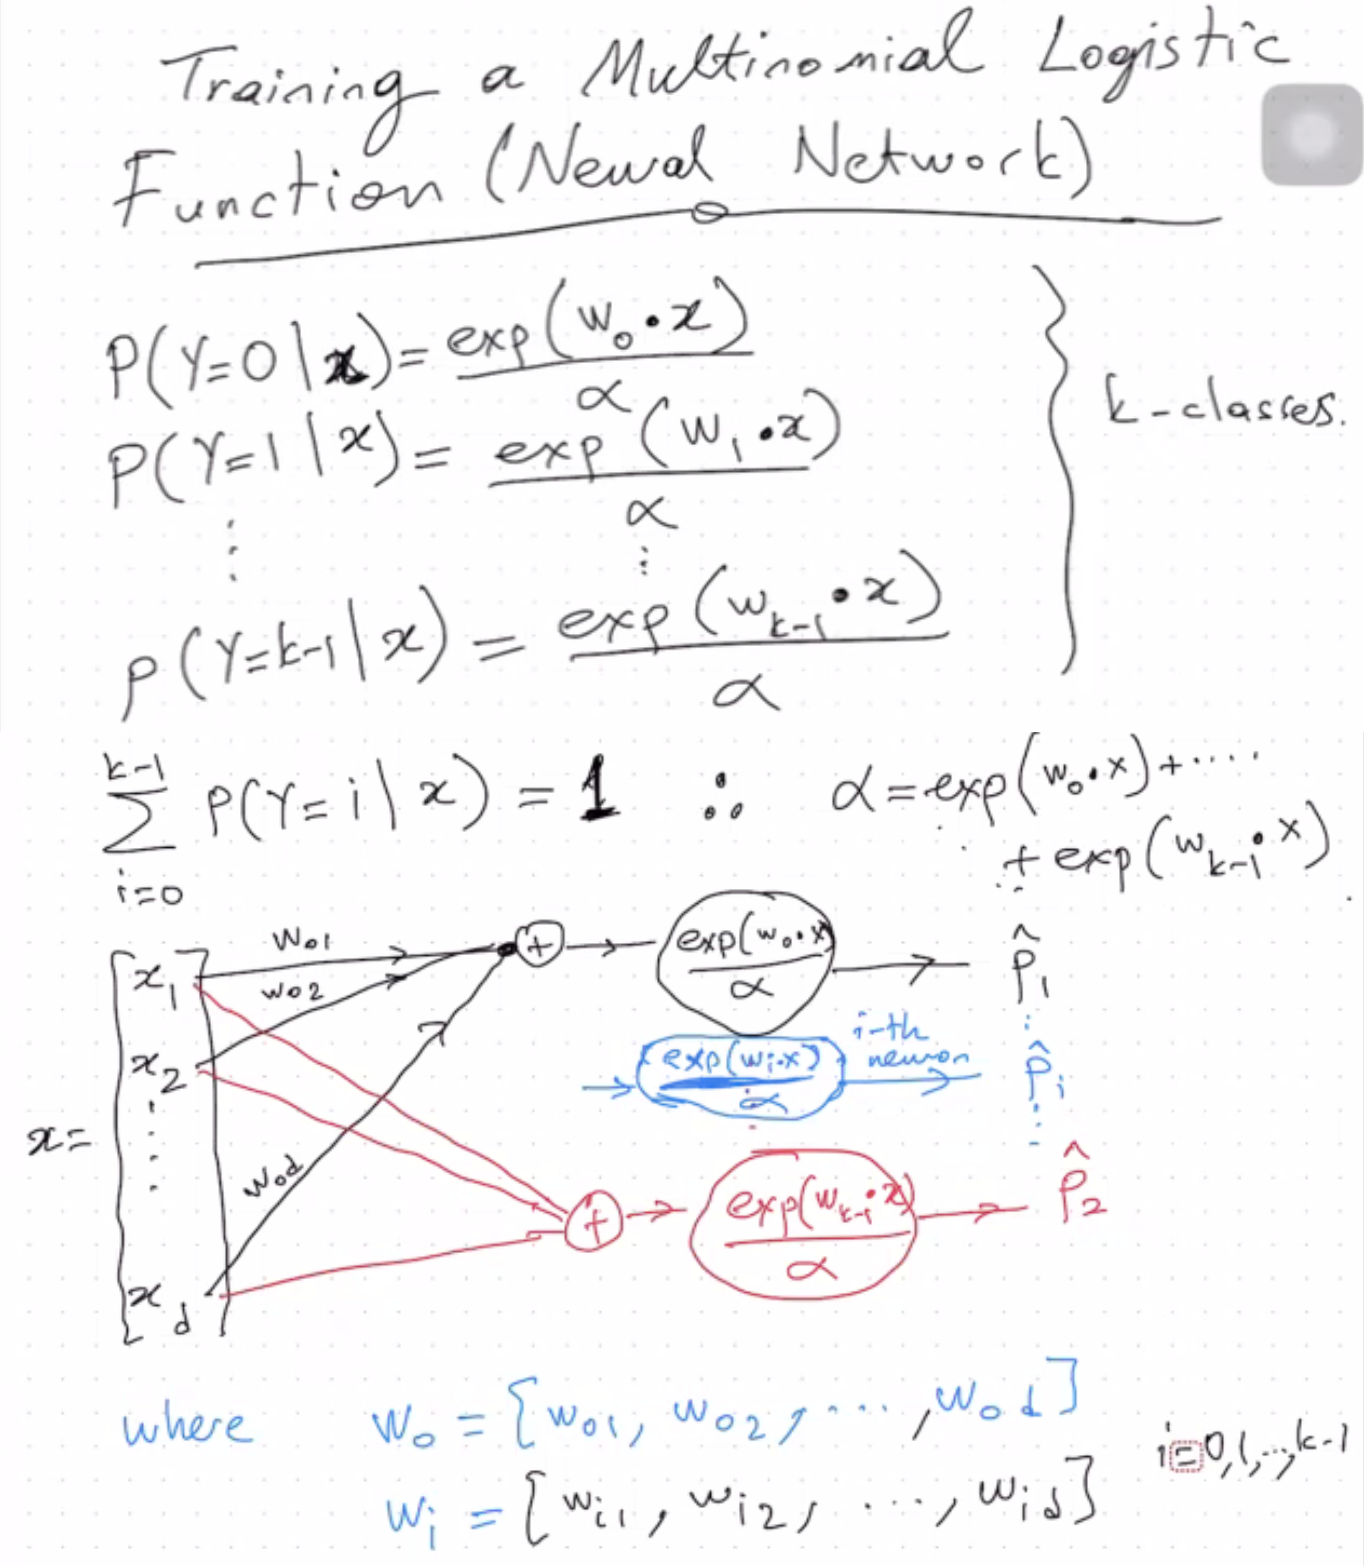 Training a Multinomial Logistic
Function (Neural Network)
P(Y=0|x) = exp(w₀•x) / α
P(Y=1|x) = exp(w₁•x) / α
⋮ ⋮
P(Y=k-1|x) = exp(w_{k-1}•x) / α
k-classes.
∑_{i=0}^{k-1} P(Y=i|x) = 1 ∴ α = exp(w₀•x) + ....
+ exp(w_{k-1}•x)
x = [x₁ x₂ ⋮ x_d]
w₀₁
w₀₂
w₀d
+
exp(w₀•x) / α
p̂₁
⋮
exp(wᵢ•x) / α
i-th
neuron
p̂ᵢ
⋮
+
exp(w_{k-1}•x) / α
p̂₂
where w₀ = [w₀₁, w₀₂, ..., w₀d]
wᵢ = [wᵢ₁, wᵢ₂, ..., wᵢd] i=0,1,...,k-1